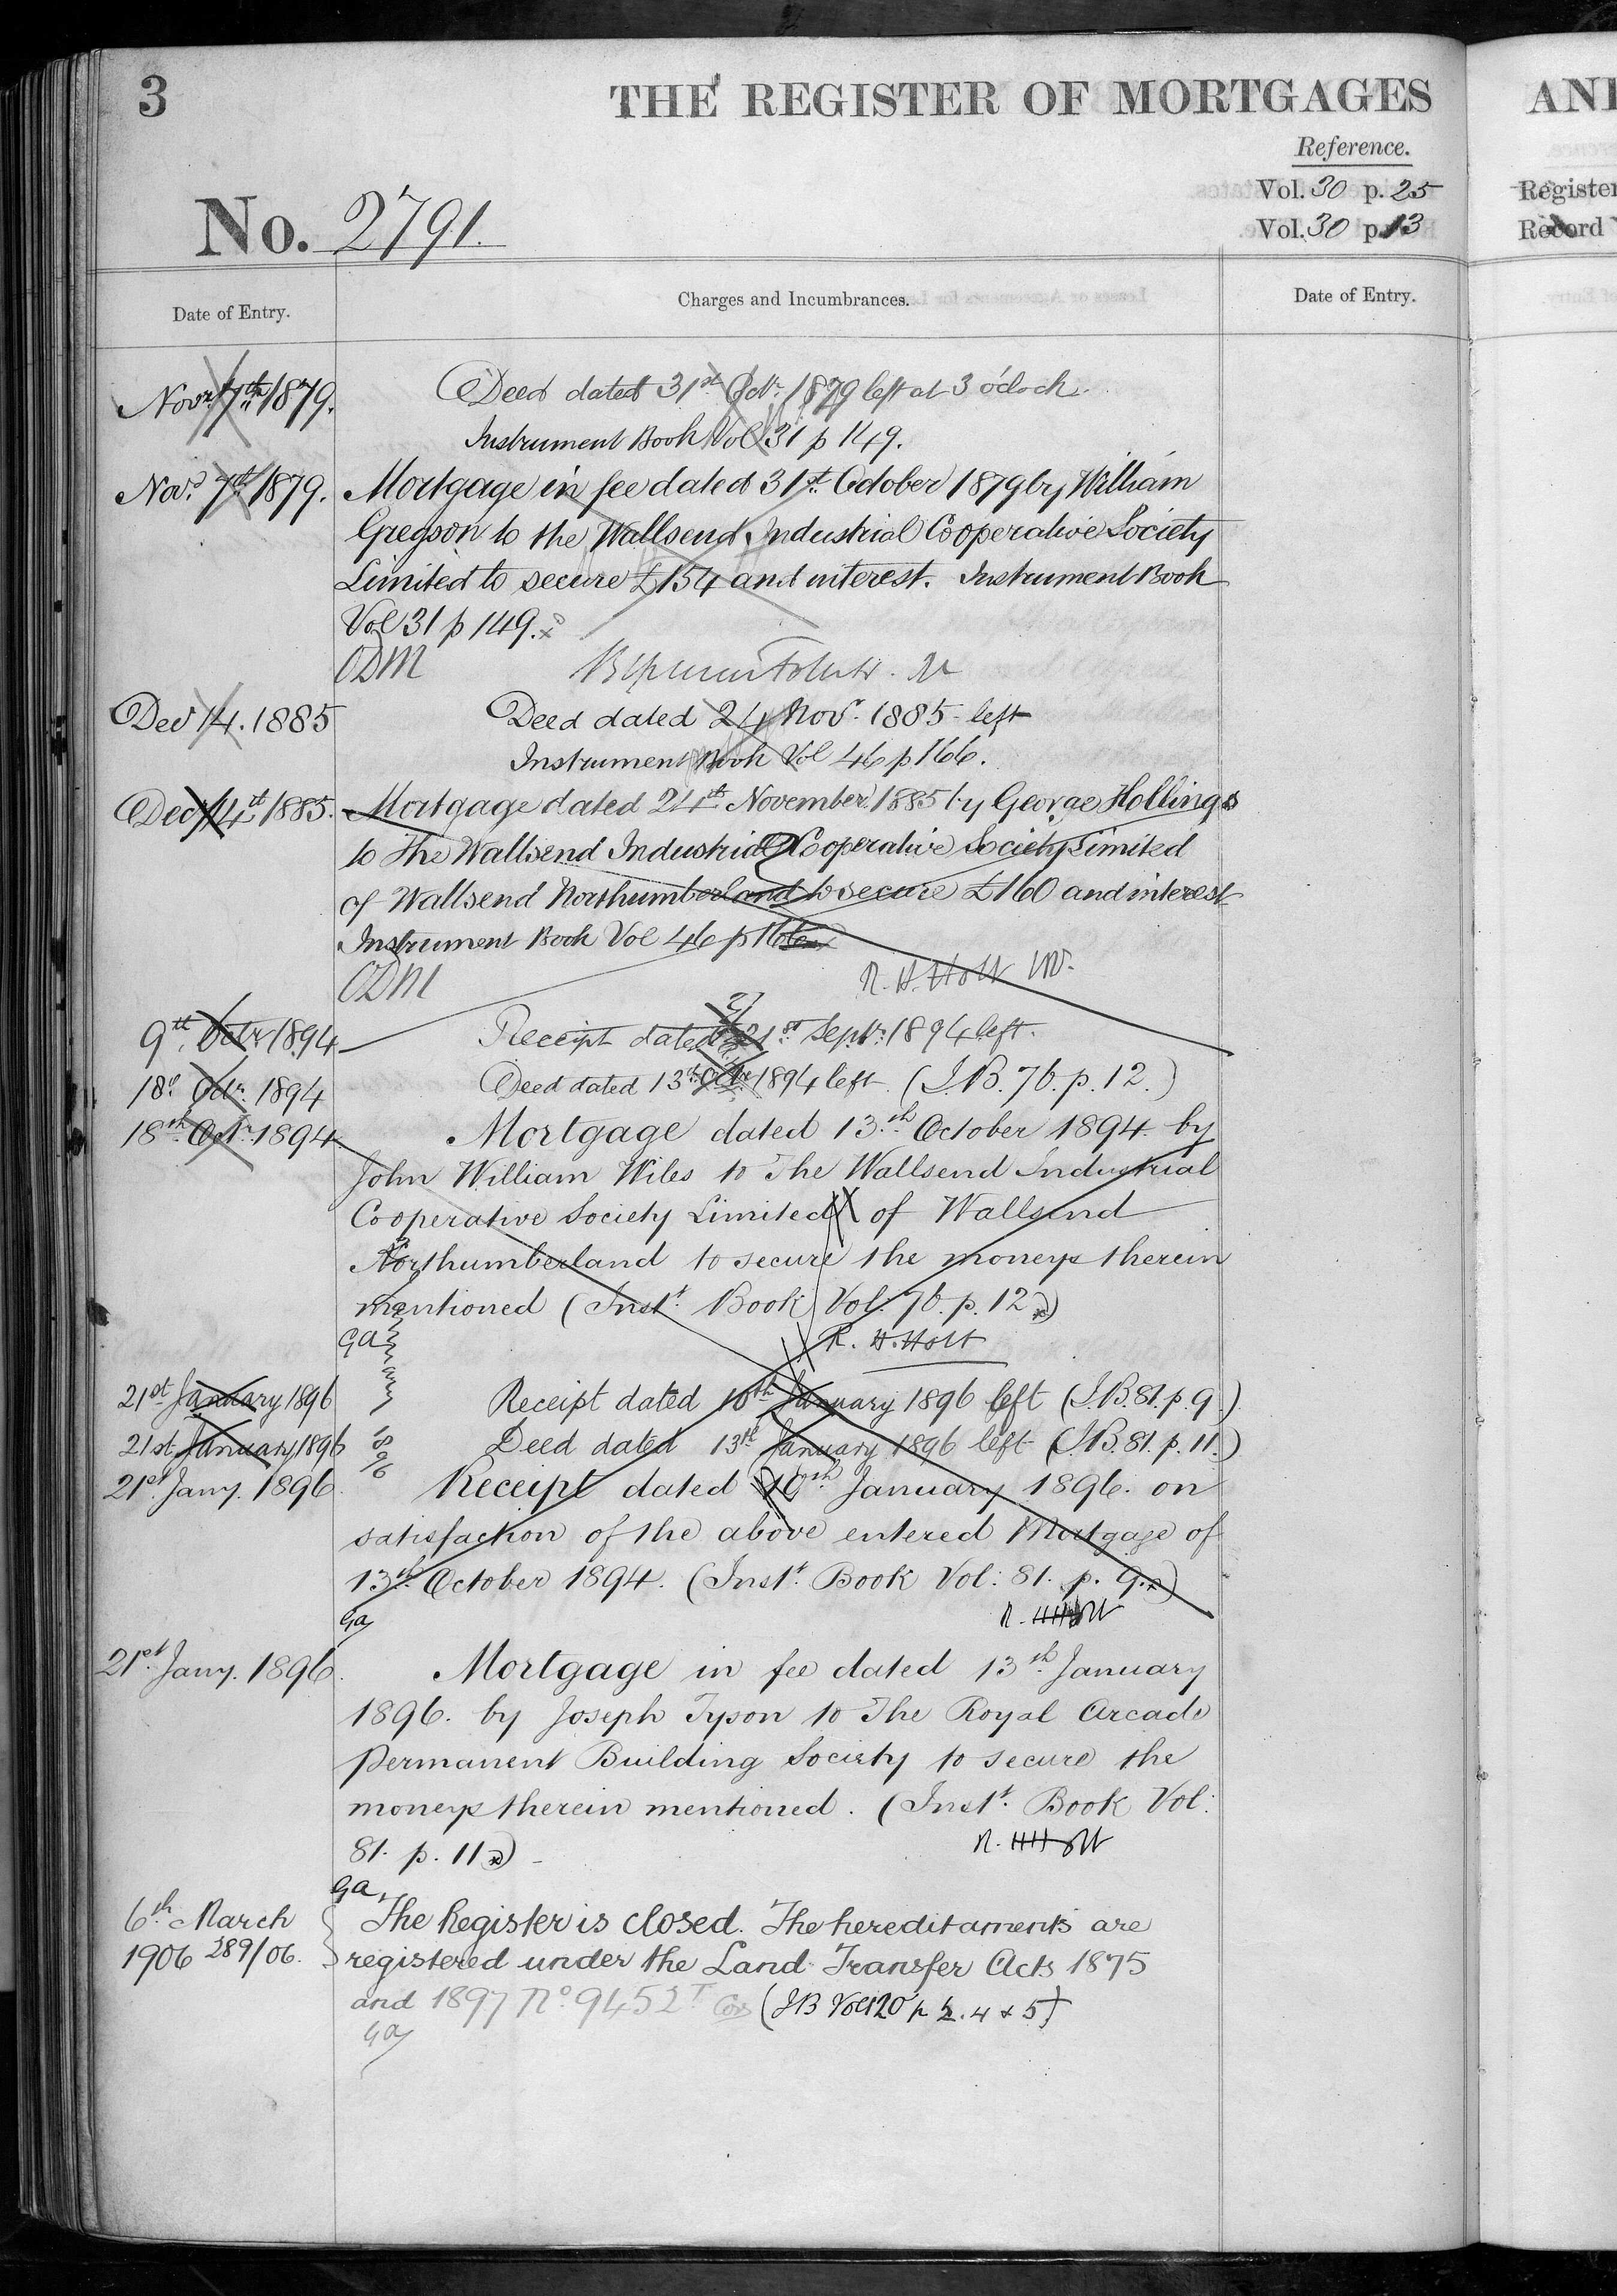 3
THE REGISTER OF MORTGAGES
Reference.
Vol. 30 p. 25
Vol. 30 p. 13
No. 2791.
Date of Entry.
Charges and Incumbrances.
Date of Entry.
Novr. 7th 1879.
Deed dated 31st Octr. 1879 left at 3 o'clock.
Instrument Book Vol 31 p 149.
Novr. 7th 1879.
Mortgage in fee dated 31st. October 1879 by William
Gregson to the Wallsend Industrial Cooperative Society
Limited to secure £154 and interest. Instrument Book
Vol 31 p 149.
ODM
Decr 14. 1885
Deed dated 24 Novr. 1885 left
Instrument Book Vol 46 p 166.
Decr 14th 1885.
Mortgage dated 24th November 1885 by George Hollings
to The Wallsend Industrial Cooperative Society Limited
of Wallsend Northumberland to secure £160 and interest
Instrument Book Vol 46 p 166
ODM
R. H. Holt
9th. Octr 1894
Receipt dated 21st. Septr. 1894 left.
18th Octr. 1894
Deed dated 13th Octr. 1894 left (I.B. 76. p. 12.)
18th Octr. 1894
Mortgage dated 13th October 1894. by
John William Wiles to The Wallsend Industrial
Cooperative Society Limited of Wallsend
Northumberland to secure the moneys therein
mentioned (Instt. Book Vol. 76. p. 12)
GA
R. H. Holt
21st January 1896
Receipt dated 10th January 1896 left (I.B. 81. p. 9.)
21st January 1896
Deed dated 13th January 1896 left (I.B. 81. p. 11.)
21st Jany. 1896
Receipt dated 10th January 1896. on
satisfaction of the above entered Mortgage of
13th October 1894. (Instt. Book Vol: 81. p. 9.)
GA
R. H Holt
21st Jany. 1896.
Mortgage in fee dated 13th January
1896. by Joseph Tyson to The Royal Arcade
Permanent Building Society to secure the
moneys therein mentioned. (Instt. Book Vol:
81. p. 11)
R. H Holt
GA
6th March
1906 289/06.
The Register is closed. The hereditaments are
registered under the Land Transfer Acts 1875
and 1897 No. 9452 (IB Vol 120 p 2. 4 + 5)
GA
AND
Register
Record